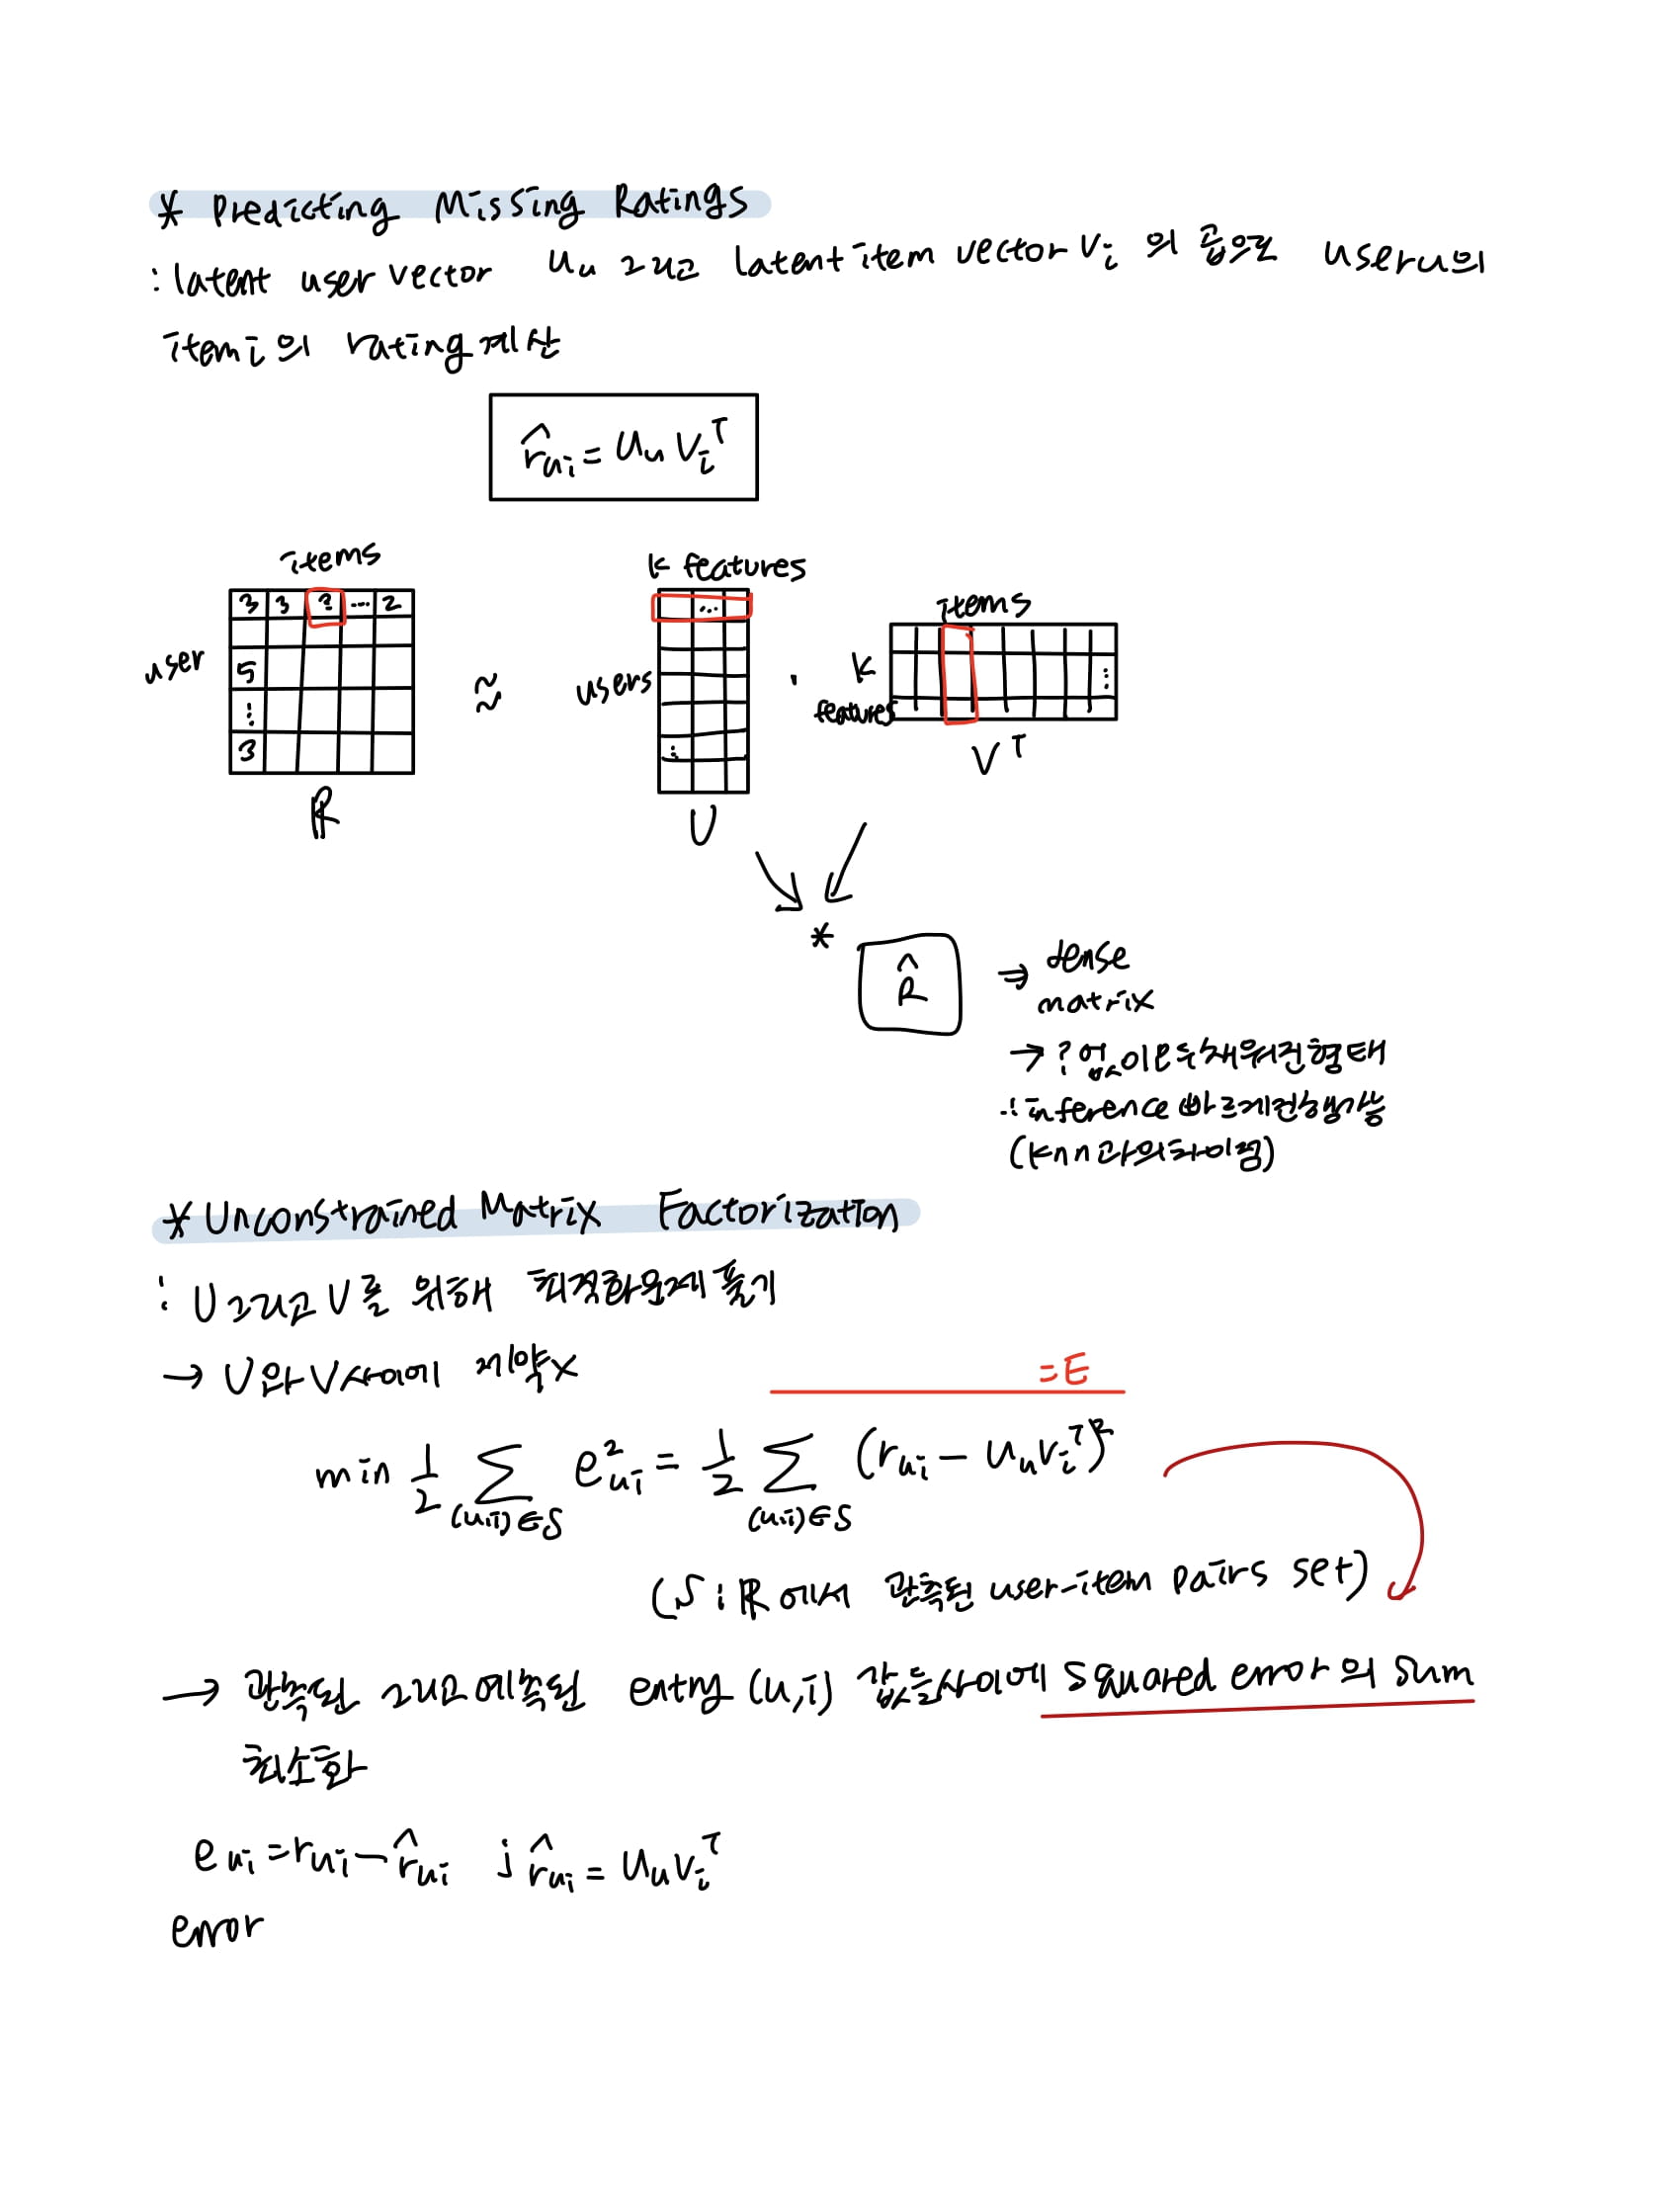 * Predicting Missing Ratings
: latent user vector u_u 그리고 latent item vector v_i 의 곱으로 user u의
item i의 rating 계산
r̂_ui = u_u v_i^T
items
k features
3 3 ? ... 2
...
items
user
5
≈
users
·
k
features
⋮
⋮
3
⋮
V^T
R
U
*
R̂
⇒ dense
matrix
→ ? 없이 모두 채워진 형태
∴ inference 빠르게 진행 가능
(knn과의 차이점)
* Unconstrained Matrix Factorization
: U 그리고 V를 위해 최적화문제 풀기
→ U와 V 사이에 제약x
= E
min 1/2 Σ_(u,i)∈S e²_ui = 1/2 Σ_(u,i)∈S (r_ui - u_u v_i^T)²
(S : R에서 관측된 user-item pairs set)
→ 관측된 그리고 예측된 entry (u,i) 값들 사이에 squared error의 sum
최소화
e_ui = r_ui - r̂_ui ; r̂_ui = u_u v_i^T
error